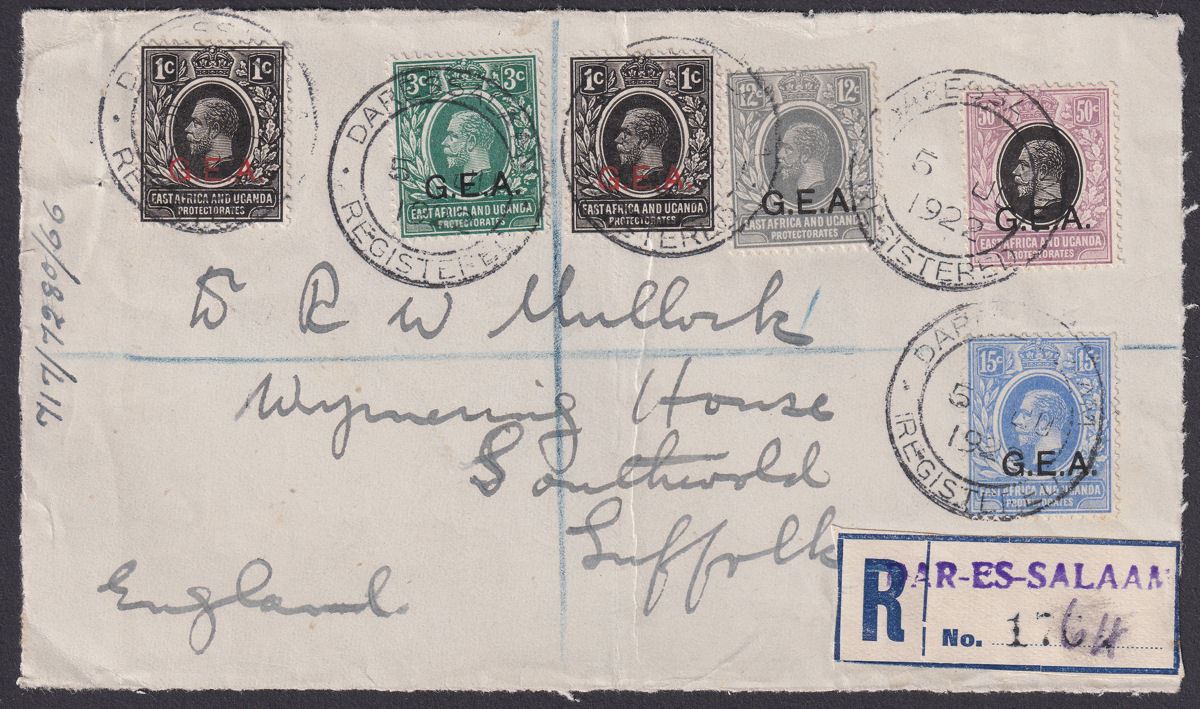 1c 1c
G.E.A.
EAST AFRICA AND UGANDA
PROTECTORATES
3c 3c
G.E.A.
EAST AFRICA AND UGANDA
PROTECTORATES
1c 1c
G.E.A.
EAST AFRICA AND UGANDA
PROTECTORATES
12c 12c
G.E.A.
EAST AFRICA AND UGANDA
PROTECTORATES
50c 50c
G.E.A.
EAST AFRICA AND UGANDA
PROTECTORATES
REGISTERED
5
1922
REGISTERED
R W Mullock
Wymering House
Southwold
Suffolk
England
15c 15c
G.E.A.
EAST AFRICA AND UGANDA
PROTECTORATES
DAR
5
192
REGISTE
R DAR-ES-SALAAM
No. 1764